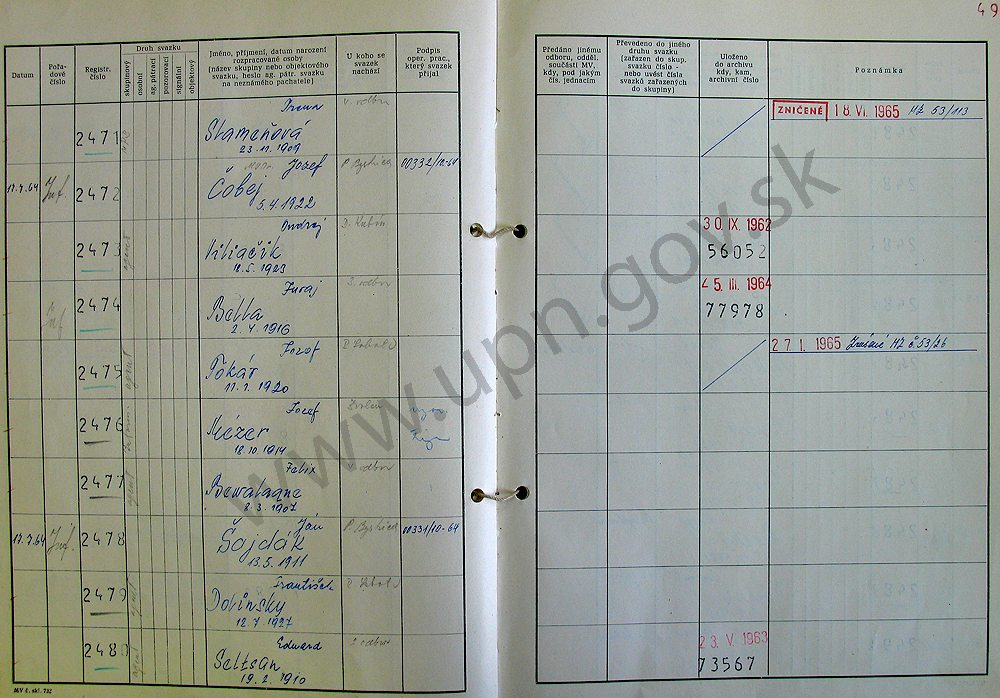 49
Datum
Pořadové číslo
Registr. číslo
Druh svazku
skupinový
osobní
ag. pátrací
pozorovací
signální
objektový
Jméno, příjmení, datum narození rozpracované osoby
(název skupiny nebo objektového svazku, heslo ag. pátr. svazku na neznámého pachatele)
U koho se svazek nachází
Podpis oper. prac., který svazek přijal
Předáno jinému odboru, odděl. součásti MV, kdy, pod jakým čís. jednacím
Převedeno do jiného druhu svazku (zařazen do skup. svazku číslo - nebo uvést čísla svazků zařazených do skupiny)
Uloženo do archivu kdy, kam, archivní číslo
Poznámka
2471
Stameňová
23.11.1909
V. odbor
ZNIČENÉ 18. VI. 1965 NZ 53/113
17.7.64 Inf. 2472
Jozef
Čobej
5.4.1922
P. Bystrica 00332/10-64
2473 agent
Ondrej
Kiliačik
12.5.1923
D. Kubín
30. IX. 1962
56052
2474
Juraj
Bella
2.4.1916
odbor
5. III. 1964
77978
2475 agent
Jozef
Tokár
11.1.1920
27. I. 1965 NZ č. 53/26
2476
Jozef
Mézer
18.10.1914
Zvolen
2477 agent
Felix
2.3.1907
odbor
17.7.64 Inf. 2478
Ján
Šojdák
13.5.1911
P. Bystrica 00331/10-64
2479 agent
František
Dolinsky
12.7.1927
2480 agent
Edward
Seltsan
19.2.1910
odbor
23. V. 1963
73567
MV č. skl. 732
www.upn.gov.sk